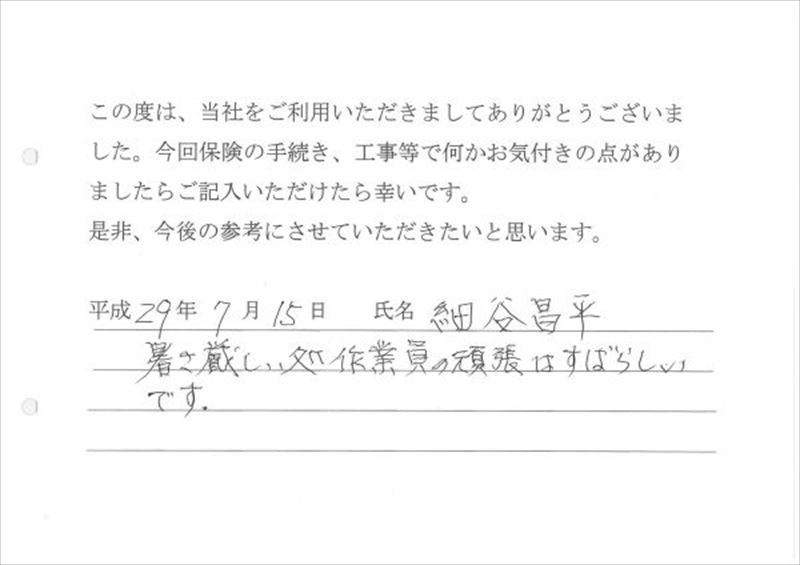 この度は、当社をご利用いただきましてありがとうございま
した。今回保険の手続き、工事等で何かお気付きの点があり
ましたらご記入いただけたら幸いです。
是非、今後の参考にさせていただきたいと思います。
平成29年7月15日 氏名 細谷昌平
暑さ厳しい処作業員の頑張はすばらしい
です.